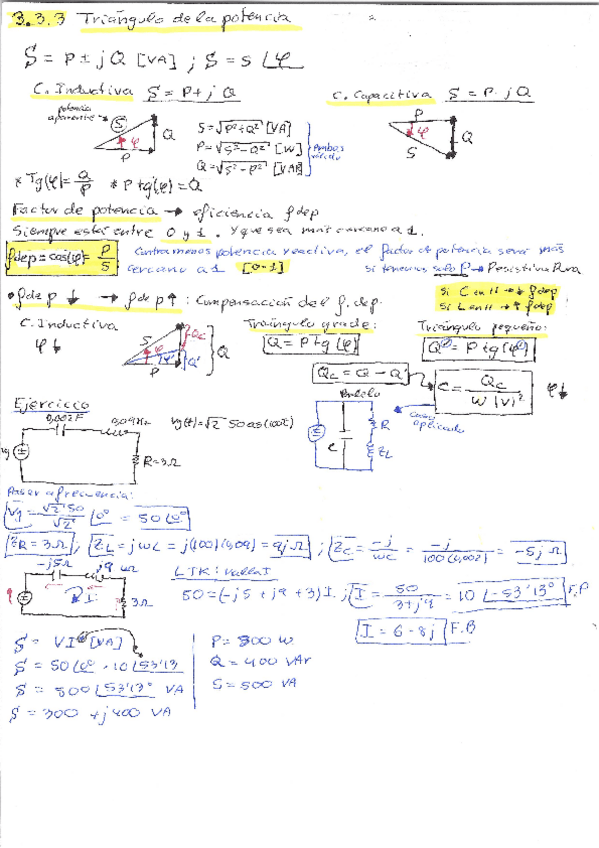 3.3.3 Triángulo de la potencia
S = P ± jQ [VA] ; S = S ∠φ
C. Inductiva S = P + jQ
C. Capacitiva S = P - jQ
potencia aparente
S φ P Q
S = √P²+Q² [VA]
P = √S²-Q² [W]
Q = √S²-P² [VAR]
P φ S Q
* Tg(φ) = Q/P * P tg(φ) = Q
Factor de potencia → eficiencia f dep
Siempre está entre 0 y 1. Y que sea más cercano a 1.
f dep = cos(φ) = P/S
Cuanta menos potencia reactiva, el factor de potencia será más
cercano a 1 [0-1] si tenemos solo P → Resistiva Pura
Si C en // → f dep
Si L en // → f dep
f de p ↓ → f de p ↑ : Compensación del f. dep.
C. Inductiva
φ ↓
S φ φ' P Qc Q' Q
Triángulo grande:
Q = P tg(φ)
Triángulo pequeño:
Q' = P tg(φ')
Qc = Q - Q'
C = Qc / W |V|²
φ ↓
Ejercicio
0,002F 0,09H
Vg
R = 3Ω
Vg(t) = √2 50 cos(100t)
C R ZL
Caso aplicado
Pasar a frecuencia:
Vg = √2·50/√2 ∠0° = 50∠0°
ZR = 3Ω ; ZL = jωL = j(100)(0,09) = 9jΩ ; ZC = -j/ωC = -j/100(0,002) = -5jΩ
-j5Ω j9 ω
I 3Ω
LTK: malla I
50 = (-j5 + j9 + 3) I ; I = 50/3+j4 = 10∠-53'13° F.P
I = 6 - 8j F.B
S = VI* [VA]
S = 50∠0° · 10∠53'13
S = 500∠53'13° VA
S = 300 + j400 VA
P = 300 W
Q = 400 VAr
S = 500 VA